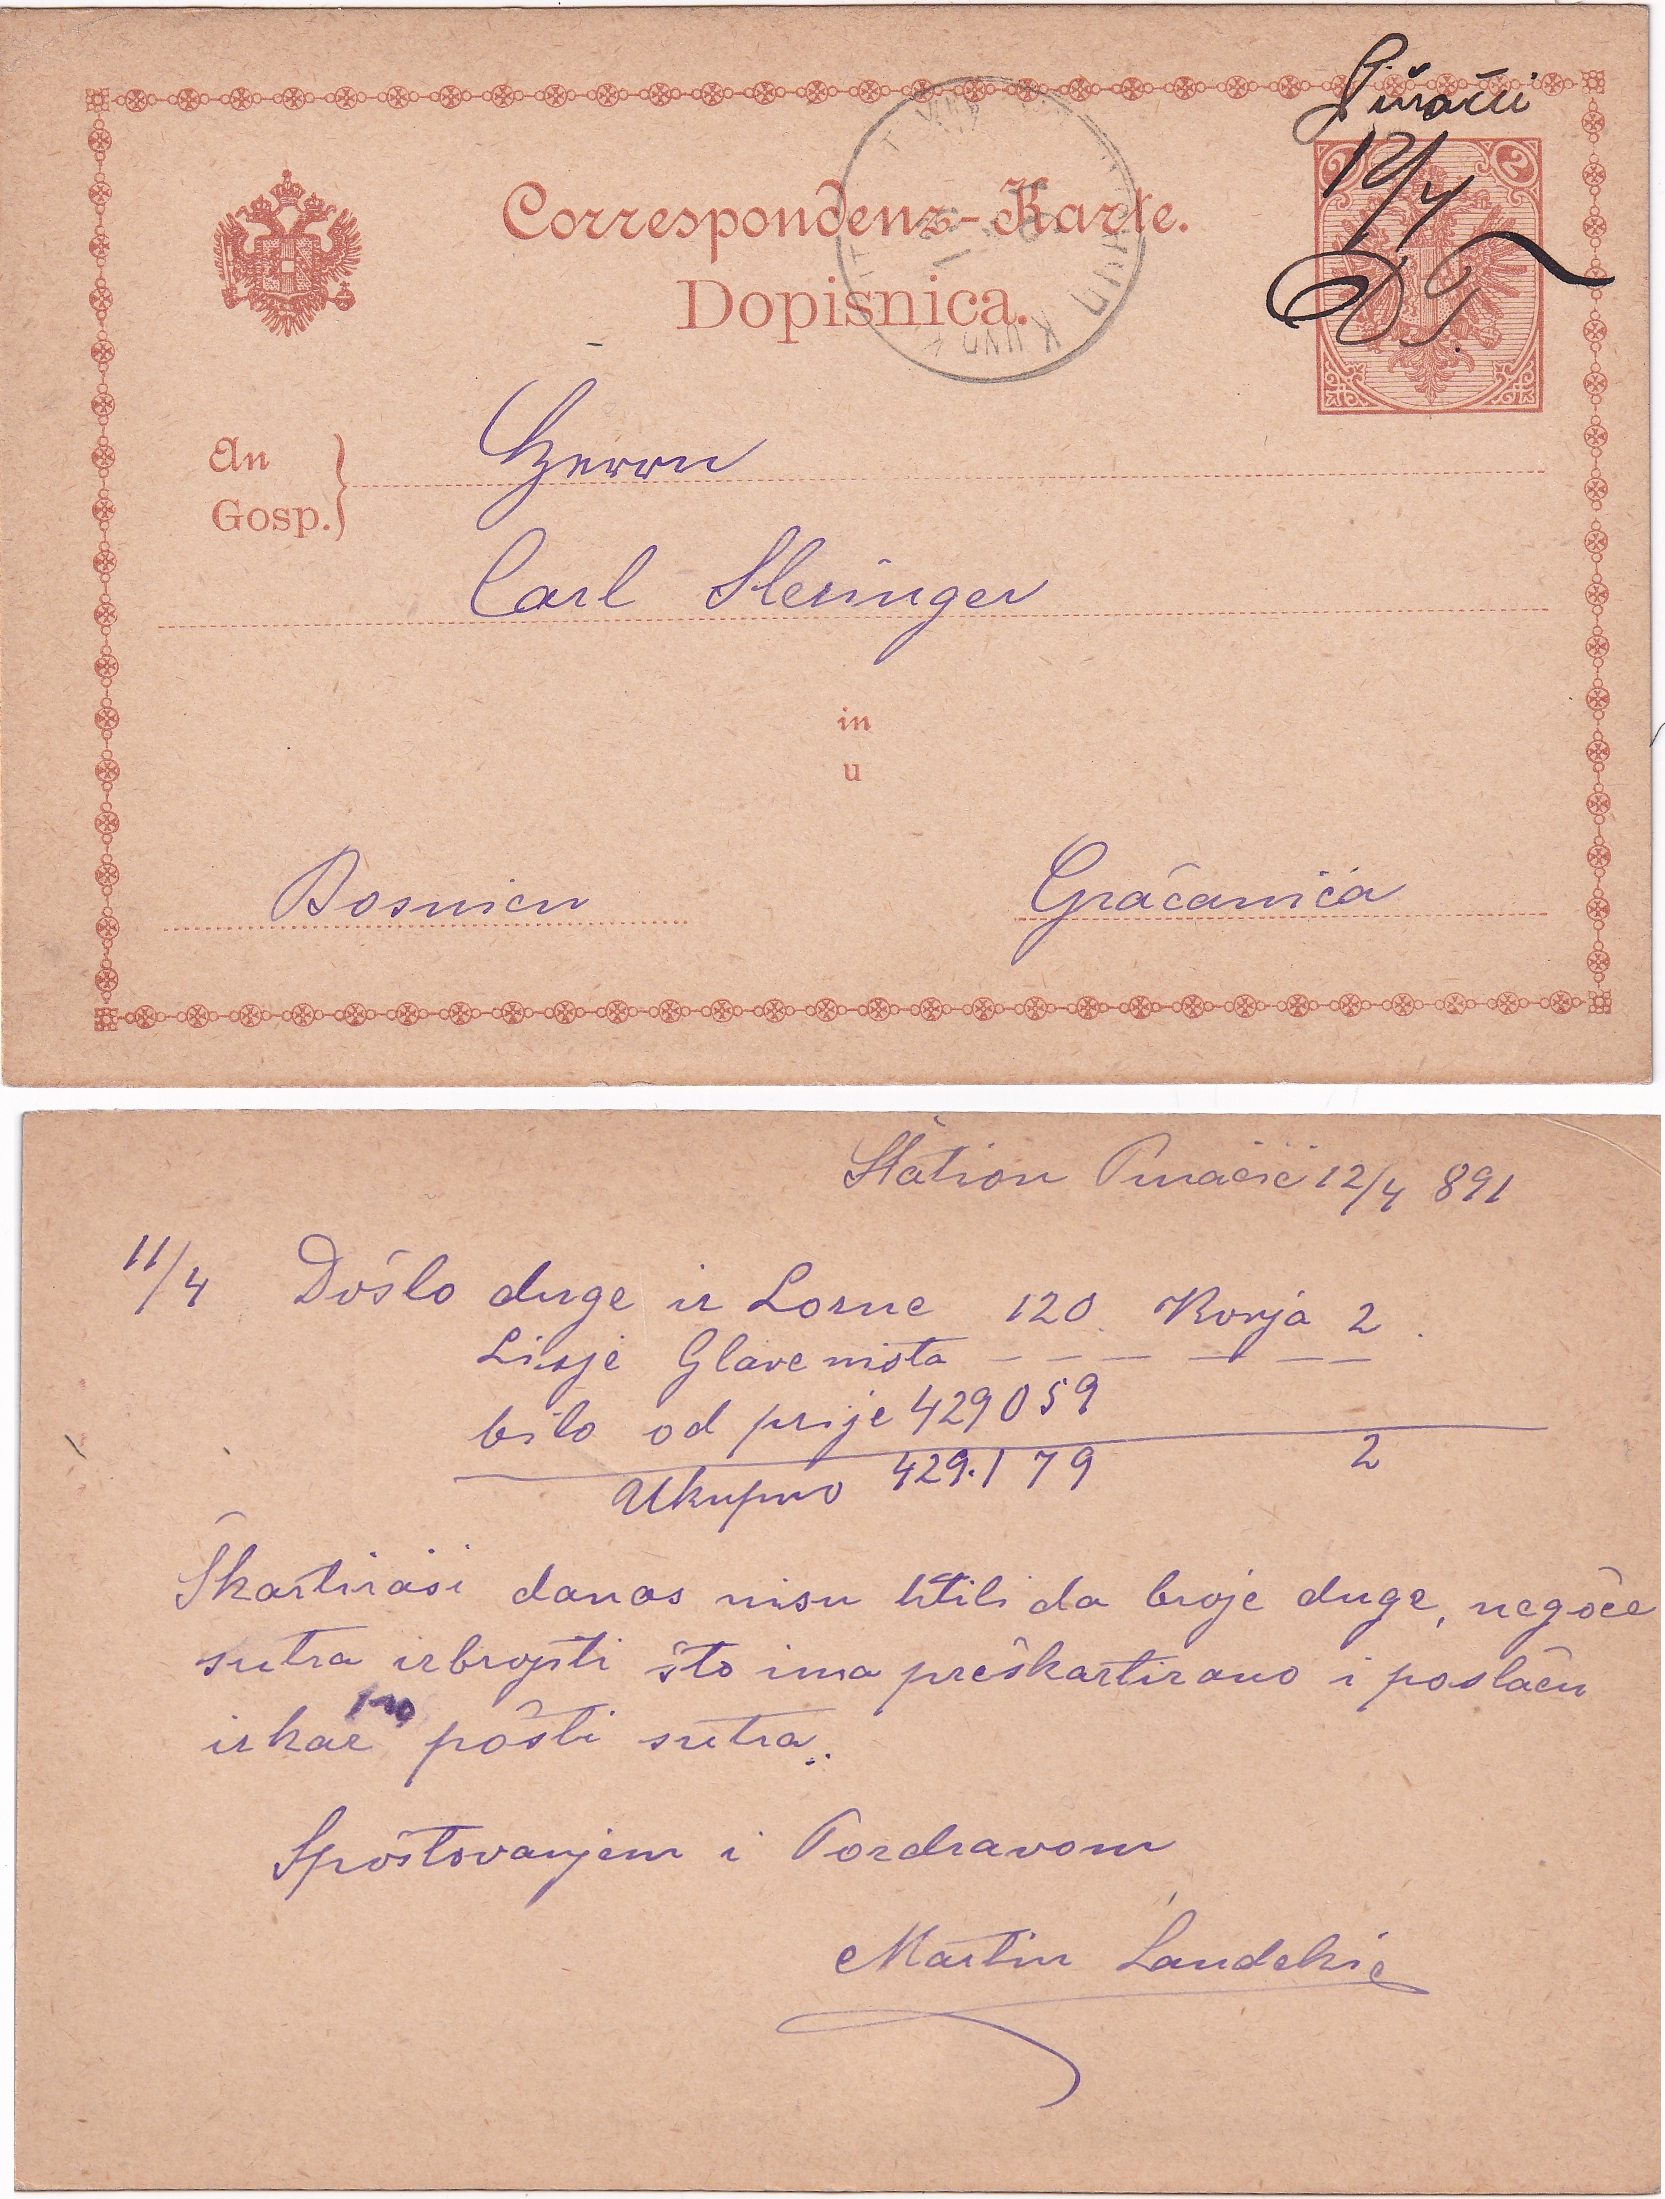 Correspondenz-Karte.
Dopisnica.
2 2
12/4
An
Gosp.
Herrn
Carl Slesinger
in
u
Bosnien Gračanica
Station Puračić 12/4 891
11/4 Došlo duge iz Lozne 120. Konja 2.
bilo od prije 429059
Ukupno 429.179 2
Škartirasi danas nisu htili da broje duge, negoće
sutra izbrojiti što ima preškartirano i poslaću
izkaz po pošti sutra.
Spoštovanjem i Pozdravom
Martin Landekić